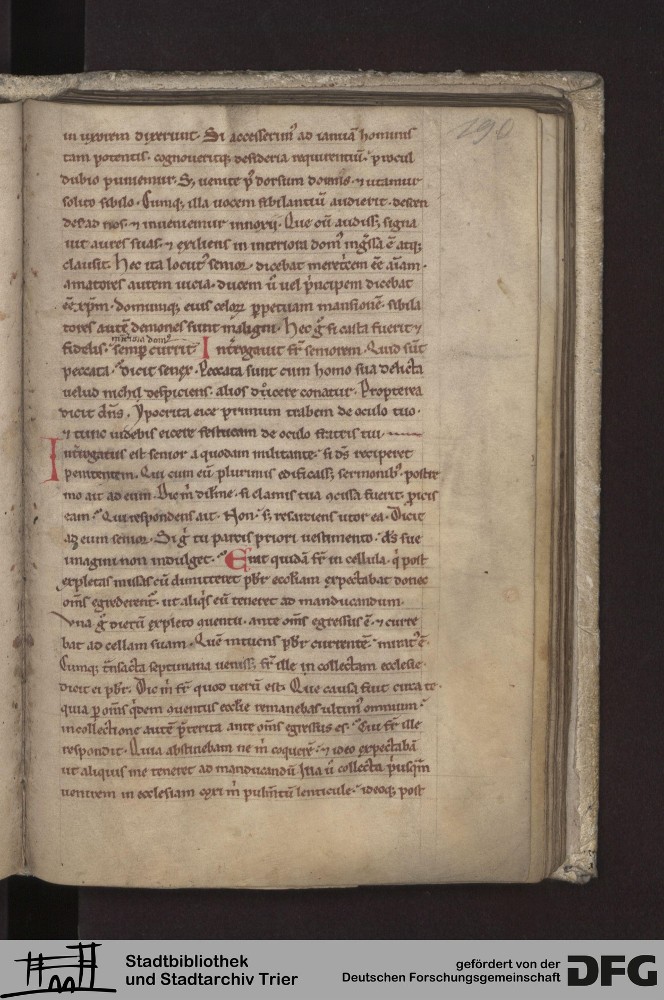 190
in uxorem dixerunt. Si accesserim' ad ianuã hominis
tam potentis. cognoveritq; desideria requirentiũ. procul
dubio puniemur. S; venite p' dorsum domus. et utamur
solito sibilo. Cumq; illa vocem sibilantiũ audierit. descen
det ad nos. et inveniemur innoxii. Que cũ audiss; signa
vit aures suas. et exiliens in interiora dom' ingssa ẽ atq;
clausit. Hec ita locut' senior. dicebat meretcem ẽẽ aĩam.
amatores autem vicia. ducem ũ vel pncipem dicebat
ẽẽ xpm. domumq; eius celor ppetuam mansionẽ. sibila
tores autẽ demones sunt maligni. Hec g si casta fuerit et
interiora dom'
fidelis. semp currit Introgavit fr seniorem. Quid sũt
peccata. Dicit senex. Peccata sunt cum homo sua delicta
velud nichil despiciens. alios docere conatur. Propterea
dicit dñs. Ypocrita eice primum trabem de oculo tuo.
et tunc videbis eicere festucam de oculo fratris tui.
Introgatus est senior a quodam militante. si ds reciperet
penitentem. Qui cum eũ plurimis edificass; sermonib' postre
mo ait ad eum. Dic m dilme. si clamis tua scissa fuerit. picis
eam. Qui respondens ait. Non. s; resarciens utor ea. Dicit
ad eum senior. Si g tu parcis priori vestimento. ds sue
imagini non indulget. Erat quidã fr in cellula. q post
expletas missas cũ dimitteret pbr eccliam expectabat donec
oms egrederent. ut aliqs eũ teneret ad manducandum.
Vna g dierũ expleto quentu. ante oms egressus ẽ. et curre
bat ad cellam suam. Quẽ intuens pbr currentẽ. mirat' ẽ.
Cumq; tnsacta septimana veniss; fr ille in collectam ecclesie.
dicit ei pbr. Dic m fr quod verũ est. Que causa fuit circa te.
quia p oms qdem quentus ecclie remanebas ultim' omnium.
in collectione autẽ pterita ante oms egressus es. Cui fr ille
respondit. Quia abstinebam ne m coquerẽ. et ideo expectabã
ut aliquis me teneret ad manducandũ. Illa ũ collecta pusqm
venirem in ecclesiam coxi m pulmtũ lenticule. ideoq; post
Stadtbibliothek
und Stadtarchiv Trier
gefördert von der
Deutschen Forschungsgemeinschaft
DFG